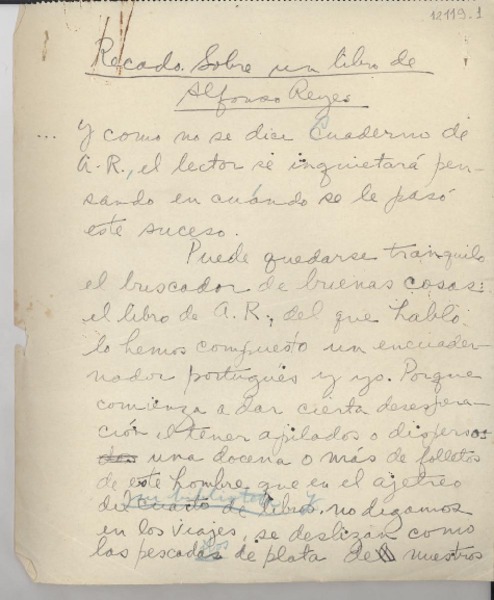 12119.1
Recado Sobre un libro de
Alfonso Reyes
... Y como no se dice Cuaderno de
A.R., el lector se inquietará pen-
sando en cuándo se le pasó
este suceso.
Puede quedarse tranquilo
el buscador de buenas cosas:
el libro de A.R., del que hablo
lo hemos compuesto un encuader-
nador portugués y yo. Porque
comienza a dar cierta desespera-
ción el tener apilados o dispersos
una docena o más de folletos
de este hombre que en el ajetreo
del cuarto de libros, no digamos
en los viajes, se deslizan como
los pescados de plata de nuestros